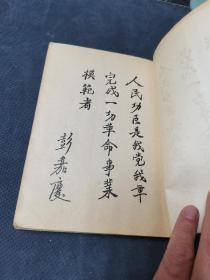 人民功臣是我党我军
完成一切革命事业
模范者
彭嘉庆